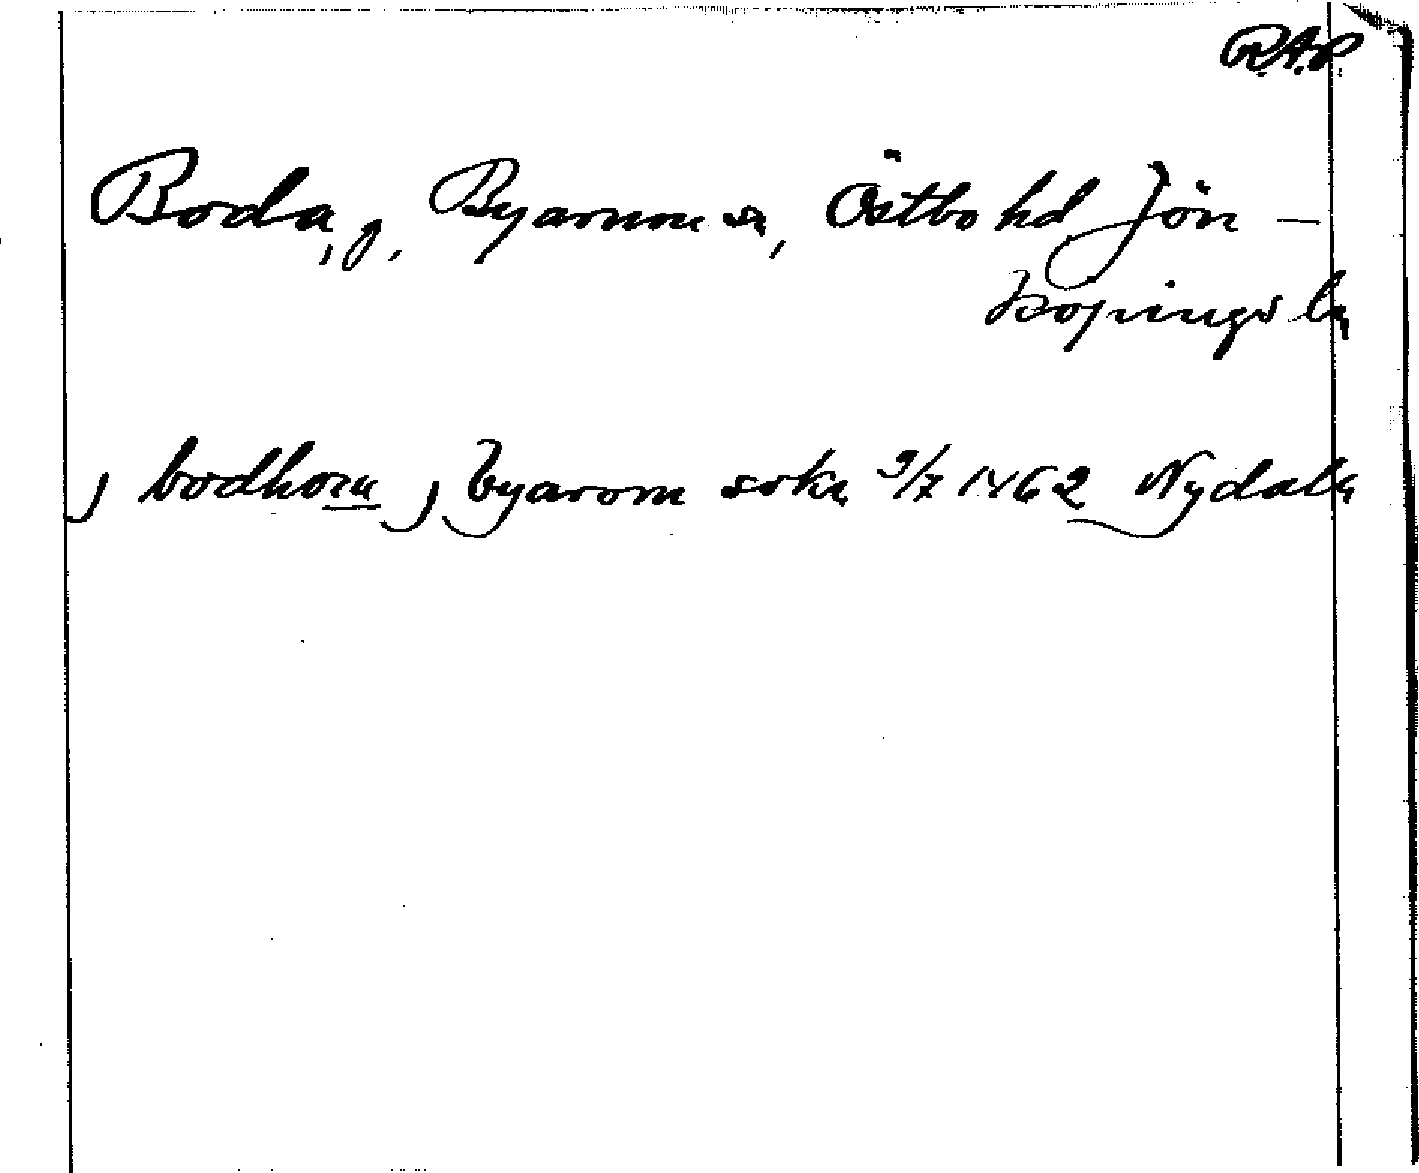 R.A.P
Boda, g, Byarum sn, Östbo hd Jön-
köpings ln
j bodhom j byarom sokn 9/7 1462 Nydala